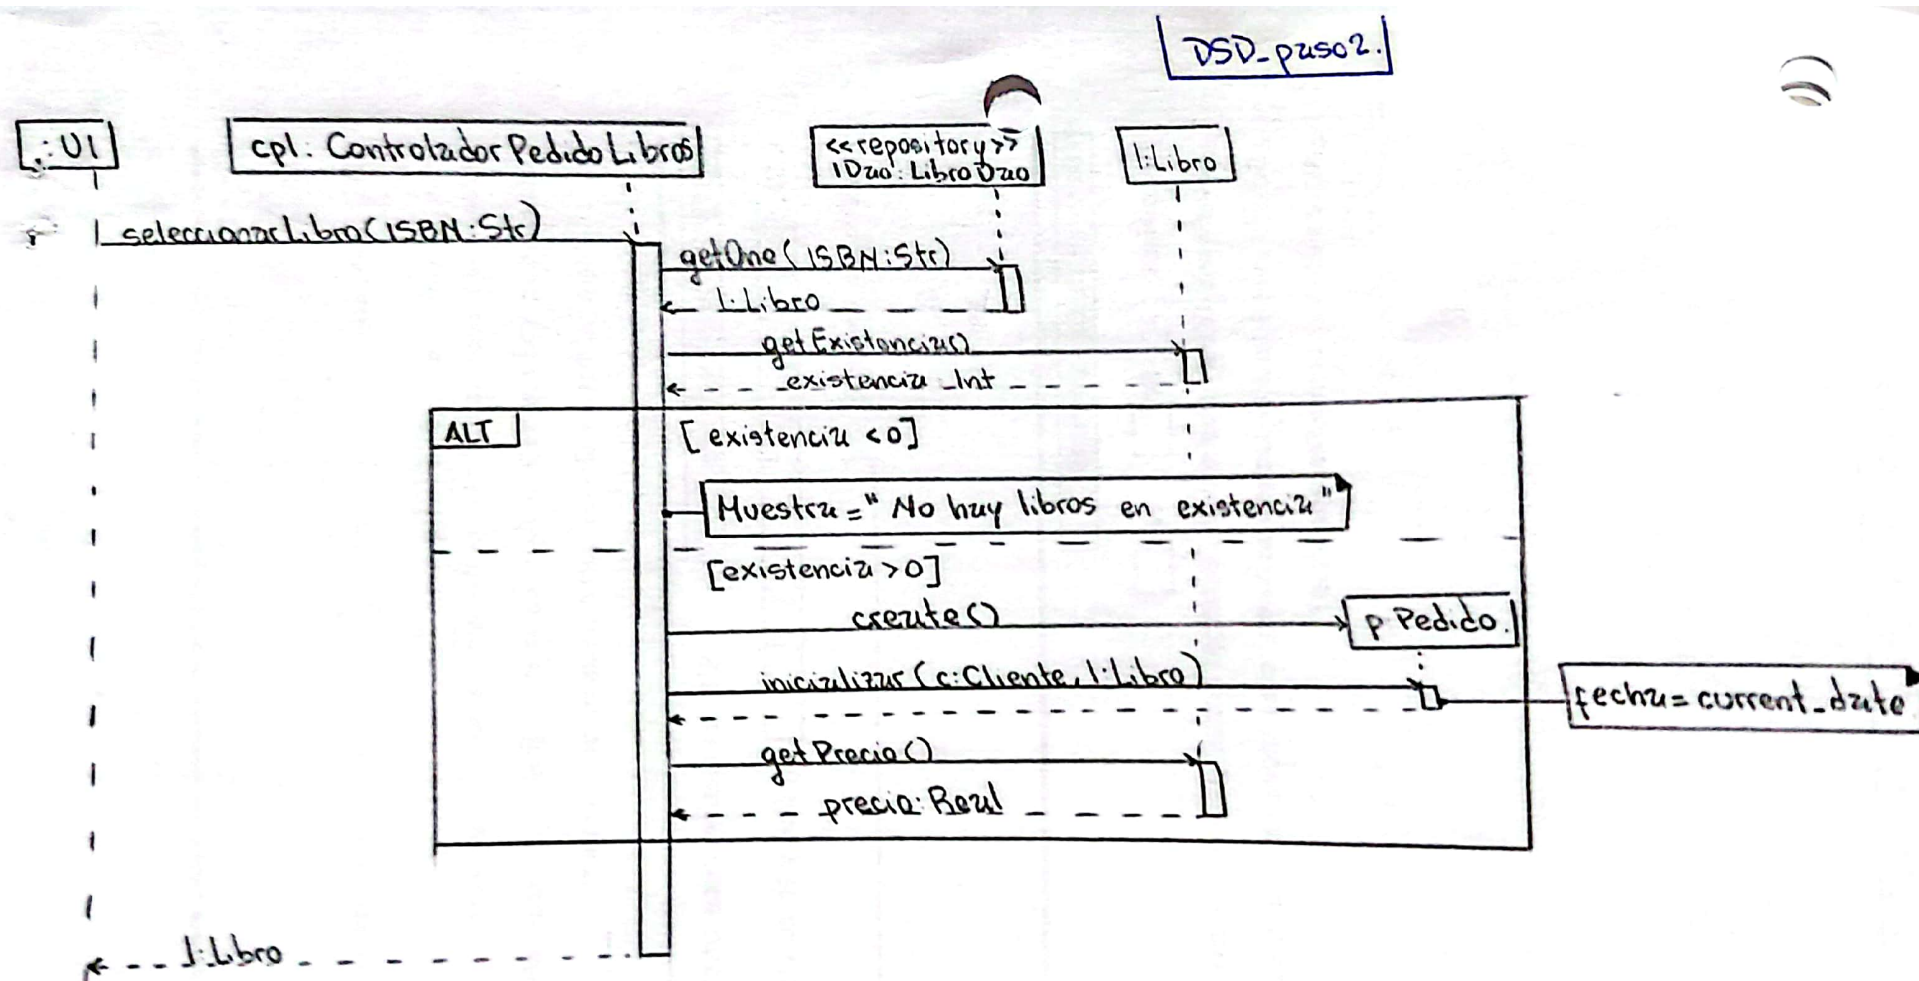 DSD_paso2.
.:UI
cpl: ControladorPedidoLibros
<<repository>>
lDao: LibroDao
l:Libro
seleccionarLibro(ISBN:Str)
getOne(ISBN:Str)
l:Libro
getExistencia()
existencia Int
ALT
[existencia <0]
Muestra="No hay libros en existencia"
[existencia >0]
create()
p Pedido.
inicializar(c:Cliente, l:Libro)
fecha=current_date
getPrecio()
precio:Real
l:Libro